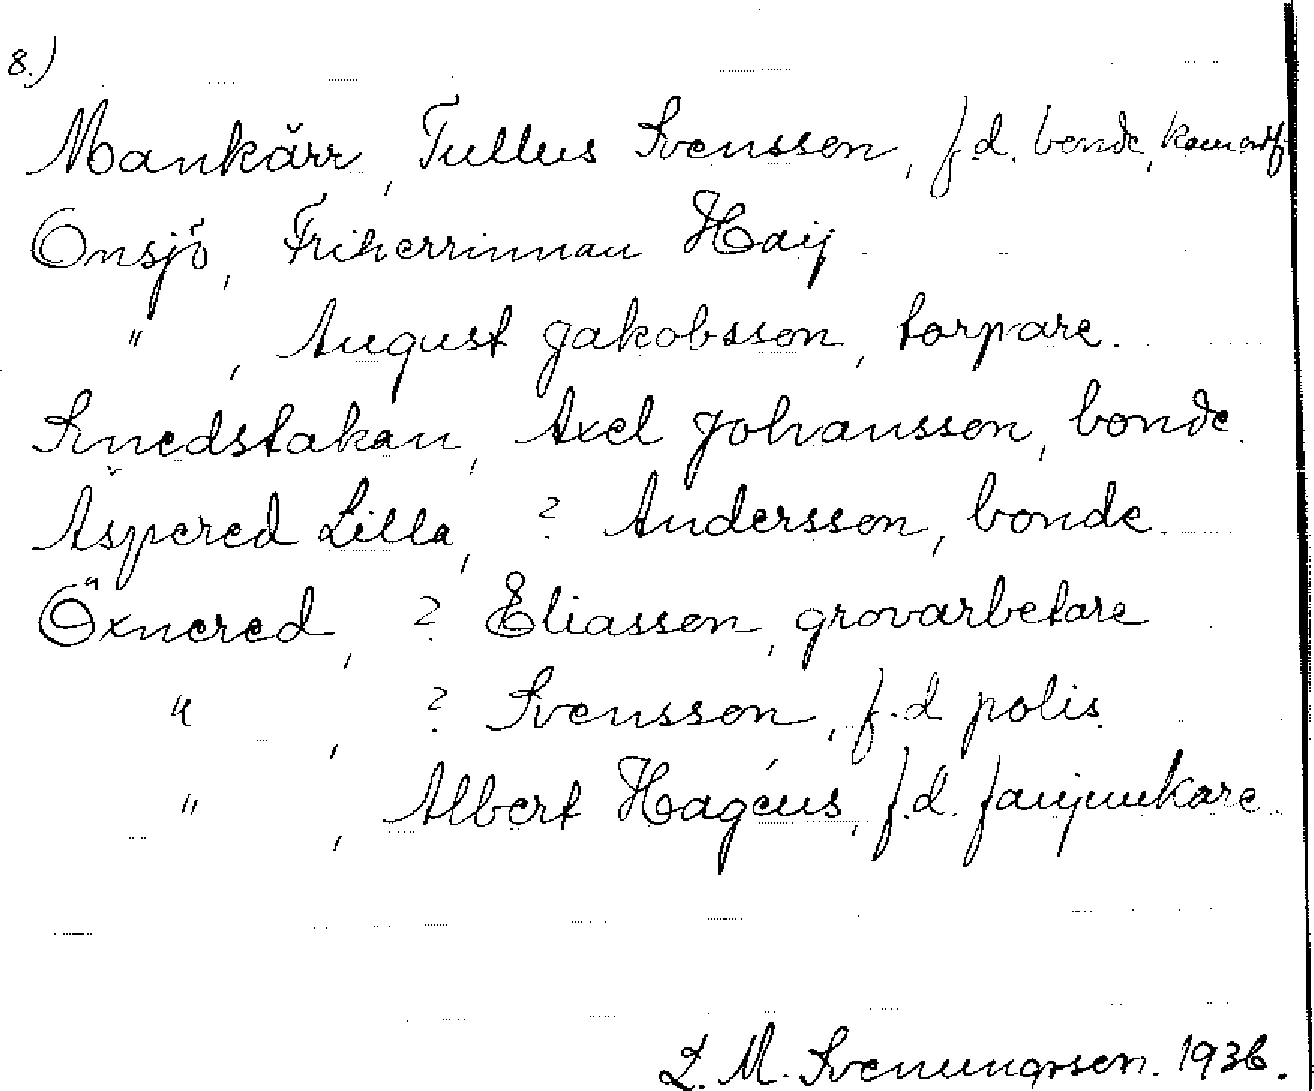 8.)
Mankärr, Tullus Svensson, f.d. bonde,
Onsjö, Friherrinnan Haij
" , August Jakobsson, torpare.
Smedstakan, Axel Johansson, bonde.
Äspered Lilla, ? Andersson, bonde.
Öxnered, ? Eliasson, grovarbetare
" , ? Svensson, f.d polis.
" , Albert Hagéus, f.d. fanjunkare.
L. M. Svenungsson. 1936.